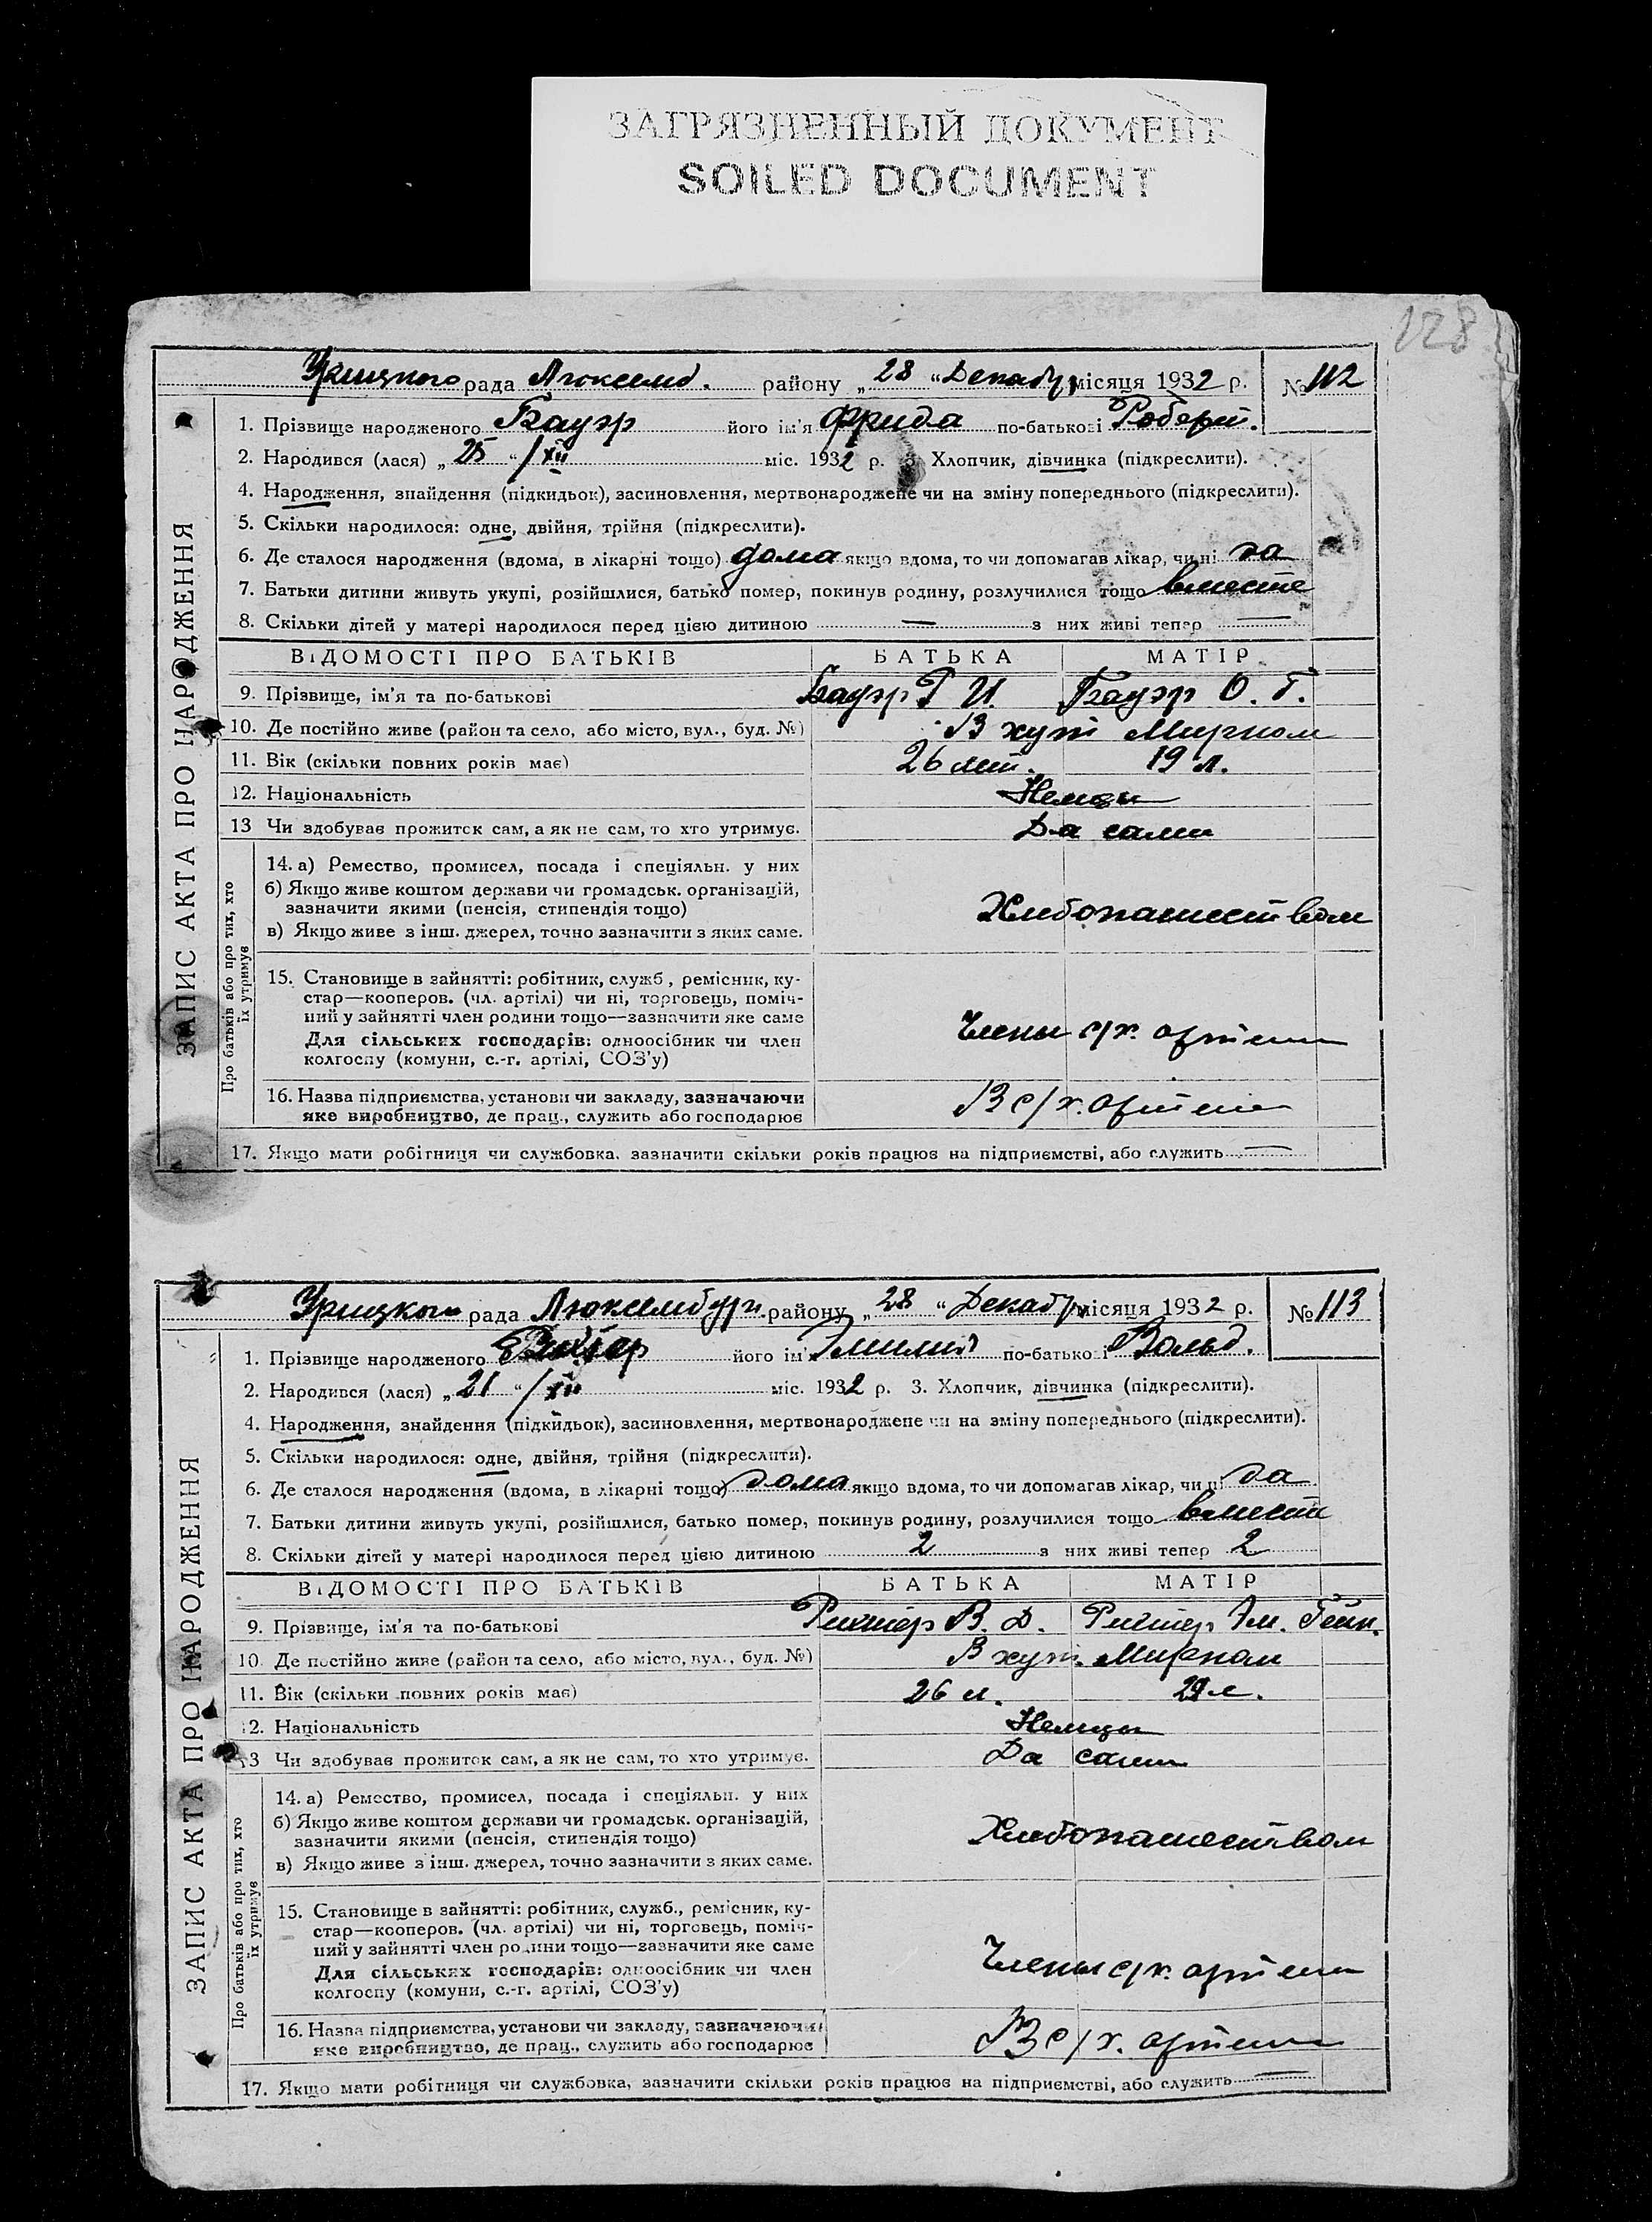 ЗАГРЯЗНЕННЫЙ ДОКУМЕНТ
SOILED DOCUMENT
128
Урицкого рада Люксемб. району „ 28 “ Декабр місяця 1932 р. № 112
ЗАПИС АКТА ПРО НАРОДЖЕННЯ
1. Прізвище народженого Бауэр його ім'я Фрида по-батькові Роберт.
2. Народився (лася) „ 25 “ / XII міс. 1932 р. 3. Хлопчик, дівчинка (підкреслити).
4. Народження, знайдення (підкидьок), засиновлення, мертвонароджене чи на зміну попереднього (підкреслити).
5. Скільки народилося: одне, двійня, трійня (підкреслити).
6. Де сталося народження (вдома, в лікарні тощо) дома якщо вдома, то чи допомагав лікар, чи ні да
7. Батьки дитини живуть укупі, розійшлися, батько помер, покинув родину, розлучилися тощо вместе
8. Скільки дітей у матері народилося перед цією дитиною — з них живі тепер —
ВІДОМОСТІ ПРО БАТЬКІВ БАТЬКА МАТІР
9. Прізвище, ім'я та по-батькові Бауэр Р И. Бауэр О. Г.
10. Де постійно живе (район та село, або місто, вул., буд. №) В хут Мирном
11. Вік (скільки повних років має) 26 лет. 19 л.
12. Національність Немцы
13 Чи здобуває прожиток сам, а як не сам, то хто утримує. Да сами
Про батьків або про тих, хто їх утримує
14. а) Ремество, промисел, посада і спеціяльн. у них
б) Якщо живе коштом держави чи громадськ. організацій,
зазначити якими (пенсія, стипендія тощо) Хлебопашеством
в) Якщо живе з інш. джерел, точно зазначити з яких саме.
15. Становище в зайнятті: робітник, служб., ремісник, ку-
стар—кооперов. (чл. артілі) чи ні, торговець, поміч-
ний у зайнятті член родини тощо—зазначити яке саме
Для сільських господарів: одноосібник чи член Члены с/х. артели
колгоспу (комуни, с.-г. артілі, СОЗ'у)
16. Назва підприємства, установи чи закладу, зазначаючи В с/х. артели
яке виробництво, де прац., служить або господарює
17. Якщо мати робітниця чи службовка, зазначити скільки років працює на підприємстві, або служить —
Урицкого рада Люксембург. району „ 28 “ Декабр місяця 1932 р. № 113
ЗАПИС АКТА ПРО НАРОДЖЕННЯ
1. Прізвище народженого його ім'я Эмилия по-батькові Вольд.
2. Народився (лася) „ 21 “ / XII міс. 1932 р. 3. Хлопчик, дівчинка (підкреслити).
4. Народження, знайдення (підкидьок), засиновлення, мертвонароджене чи на зміну попереднього (підкреслити).
5. Скільки народилося: одне, двійня, трійня (підкреслити).
6. Де сталося народження (вдома, в лікарні тощо) дома якщо вдома, то чи допомагав лікар, чи ні да
7. Батьки дитини живуть укупі, розійшлися, батько помер, покинув родину, розлучилися тощо вместе
8. Скільки дітей у матері народилося перед цією дитиною 2 з них живі тепер 2
ВІДОМОСТІ ПРО БАТЬКІВ БАТЬКА МАТІР
9. Прізвище, ім'я та по-батькові Рихтер В. Д. Рихтер Эм. Гейн.
10. Де постійно живе (район та село, або місто, вул., буд. №) В хут. Мирном
11. Вік (скільки повних років має) 26 л. 29 л.
12. Національність Немцы
13 Чи здобуває прожиток сам, а як не сам, то хто утримує. Да сами
Про батьків або про тих, хто їх утримує
14. а) Ремество, промисел, посада і спеціяльн. у них
б) Якщо живе коштом держави чи громадськ. організацій,
зазначити якими (пенсія, стипендія тощо) Хлебопашеством
в) Якщо живе з інш. джерел, точно зазначити з яких саме.
15. Становище в зайнятті: робітник, служб., ремісник, ку-
стар—кооперов. (чл. артілі) чи ні, торговець, поміч-
ний у зайнятті член родини тощо—зазначити яке саме
Для сільських господарів: одноосібник чи член Члены с/х. артели
колгоспу (комуни, с.-г. артілі, СОЗ'у)
16. Назва підприємства, установи чи закладу, зазначаючи В с/х. артели
яке виробництво, де прац., служить або господарює
17. Якщо мати робітниця чи службовка, зазначити скільки років працює на підприємстві, або служить —